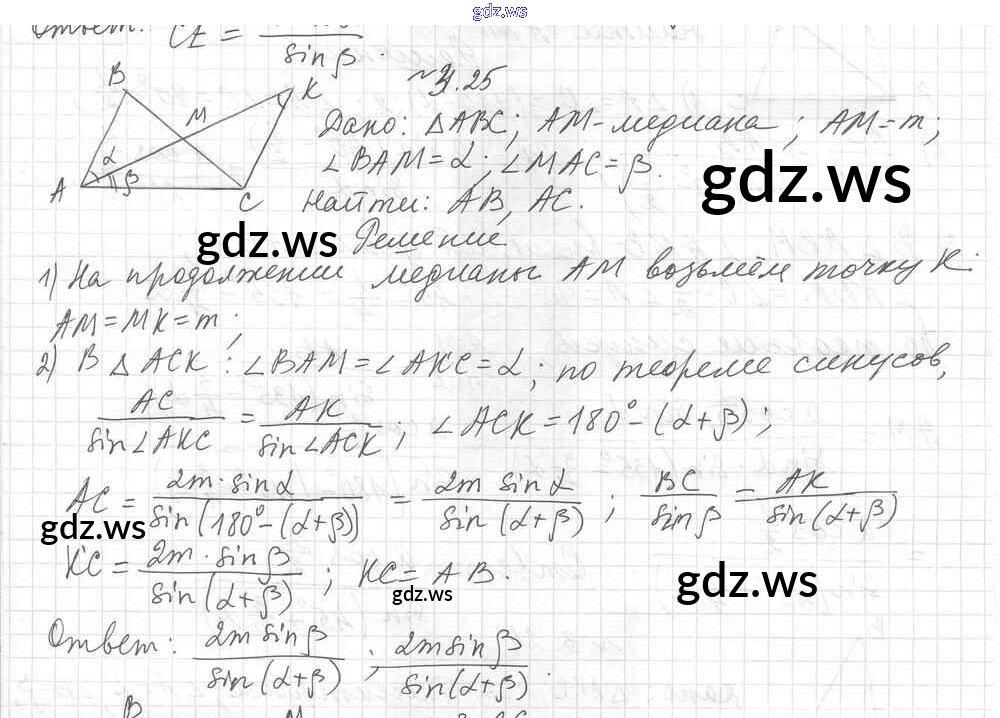 gdz.ws
Ответ: CE =
sin β .
№ 3.25
B K M α β A C
Дано: △ABC; AM-медиана; AM=m;
∠BAM=α; ∠MAC=β.
gdz.ws
Найти: AB, AC.
gdz.ws
Решение
1) На продолжении медианы AM возьмём точку K:
AM=MK=m;
2) В △ ACK: ∠BAM=∠AKC=α; по теореме синусов,
AC / sin∠AKC = AK / sin∠ACK ; ∠ACK=180°-(α+β);
AC = 2m·sinα / sin(180°-(α+β)) = 2m sinα / sin(α+β) ; BC / sinβ = AK / sin(α+β)
gdz.ws
KC = 2m·sinβ / sin(α+β) ; KC=AB.
gdz.ws
gdz.ws
Ответ: 2m sinβ / sin(α+β) ; 2m sinβ / sin(α+β) .
B M